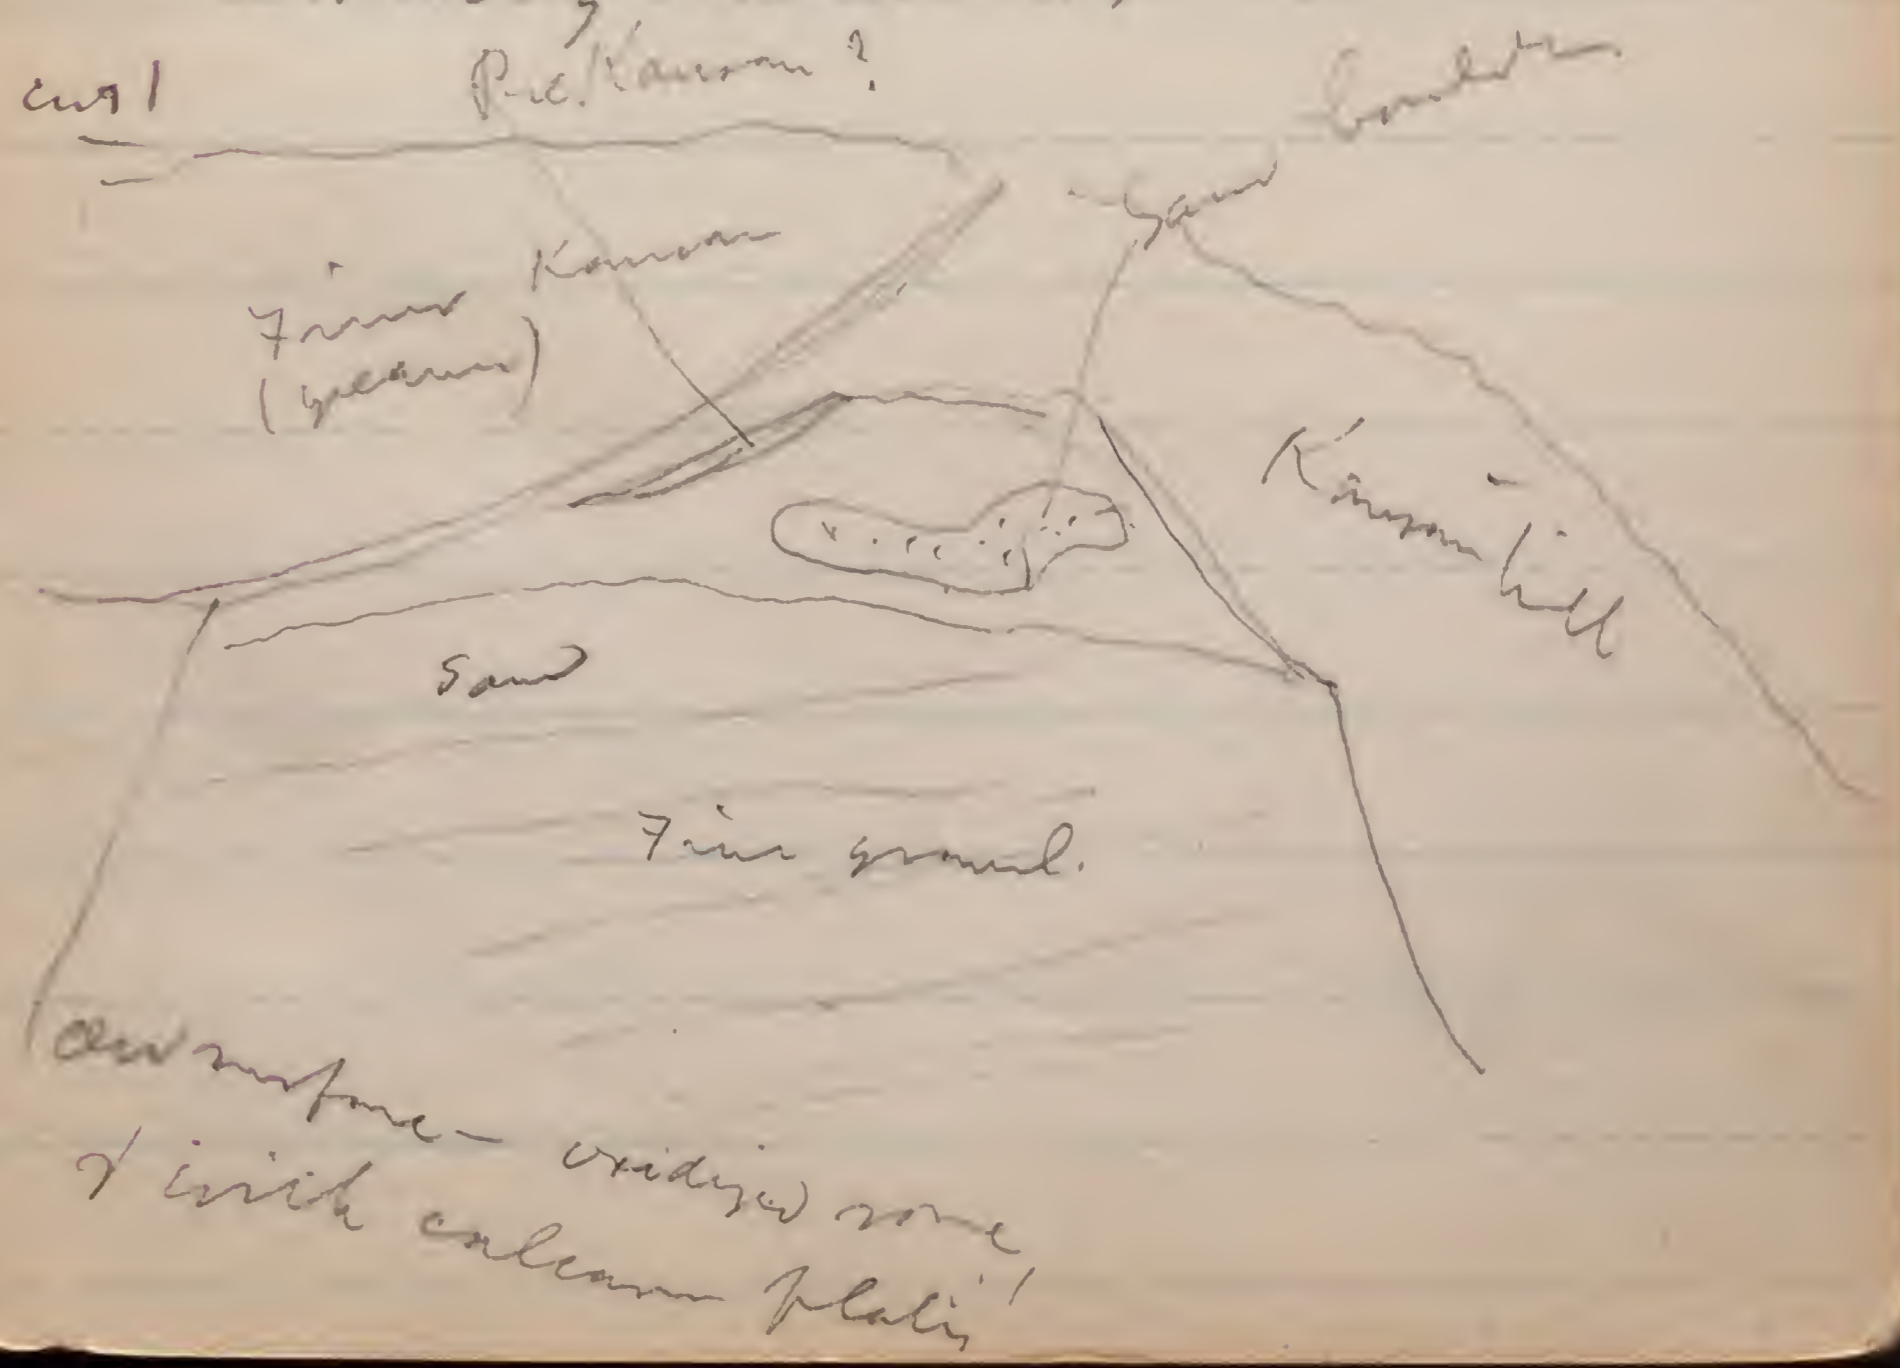 cut 1
Pre-Kansan ?
Sand boulder
Finer Kansan
Kansan till
Sand
Fine gravel.
Old surface — oxidized zone
& with calcareous plates